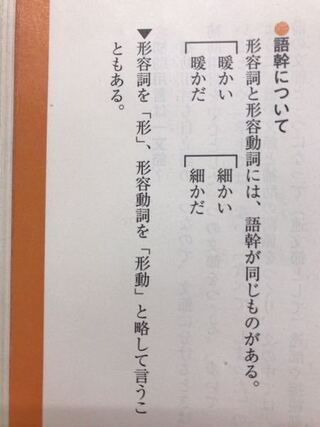 ●語幹について
形容詞と形容動詞には、語幹が同じものがある。
暖かい 細かい
暖かだ 細かだ
▼形容詞を「形」、形容動詞を「形動」と略して言うこ
ともある。